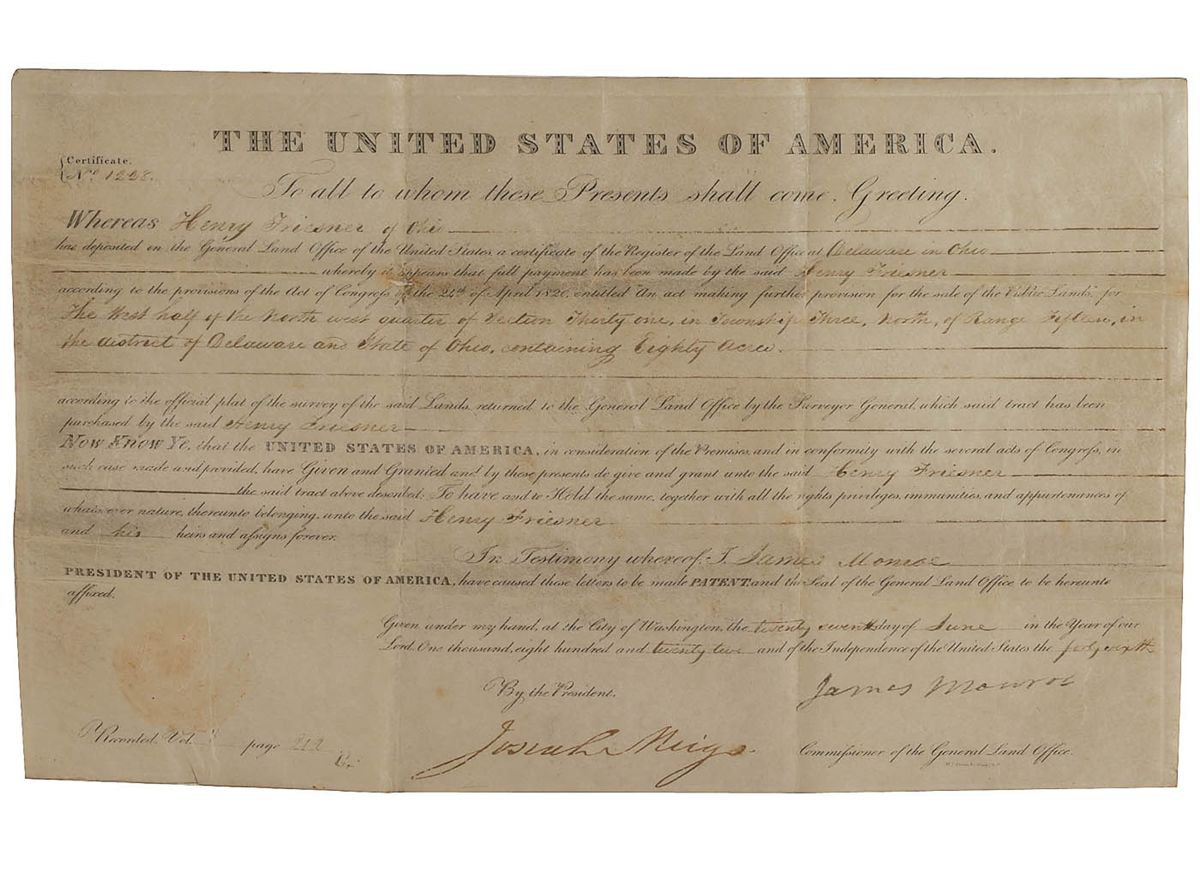 THE UNITED STATES OF AMERICA.
Certificate.
No. 1228.
To all to whom these Presents shall come, Greeting.
Whereas Henry Friesner of Ohio
has deposited in the General Land Office of the United States a certificate of the Register of the Land Office at Delaware in Ohio
whereby it appears that full payment has been made by the said Henry Friesner
according to the provisions of the Act of Congress of the 24th of April 1820, entitled An act making further provision for the sale of the Public Lands, for
the West half of the North west quarter of Section Thirty one, in Township Three, North, of Range Fifteen, in
the district of Delaware and State of Ohio, containing Eighty Acres.
according to the official plat of the survey of the said Lands, returned to the General Land Office by the Surveyor General, which said tract has been
purchased by the said Henry Friesner
Now Know Ye, that the UNITED STATES OF AMERICA, in consideration of the Premises, and in conformity with the several acts of Congress, in
such case made and provided, have Given and Granted and by these presents do give and grant unto the said Henry Friesner
the said tract above described; To have and to Hold the same, together with all the rights privileges, immunities and appurtenances of
whatsoever nature, thereunto belonging, unto the said Henry Friesner
and his heirs and assigns forever.
In Testimony whereof, I James Monroe
PRESIDENT OF THE UNITED STATES OF AMERICA, have caused these letters to be made PATENT, and the Seal of the General Land Office to be hereunto
affixed.
Given under my hand, at the City of Washington, the twenty seventh day of June in the Year of our
Lord One thousand, eight hundred and twenty two and of the Independence of the United States the forty sixth
By the President.
James Monroe
Josiah Meigs
Commissioner of the General Land Office.
Recorded, Vol. page